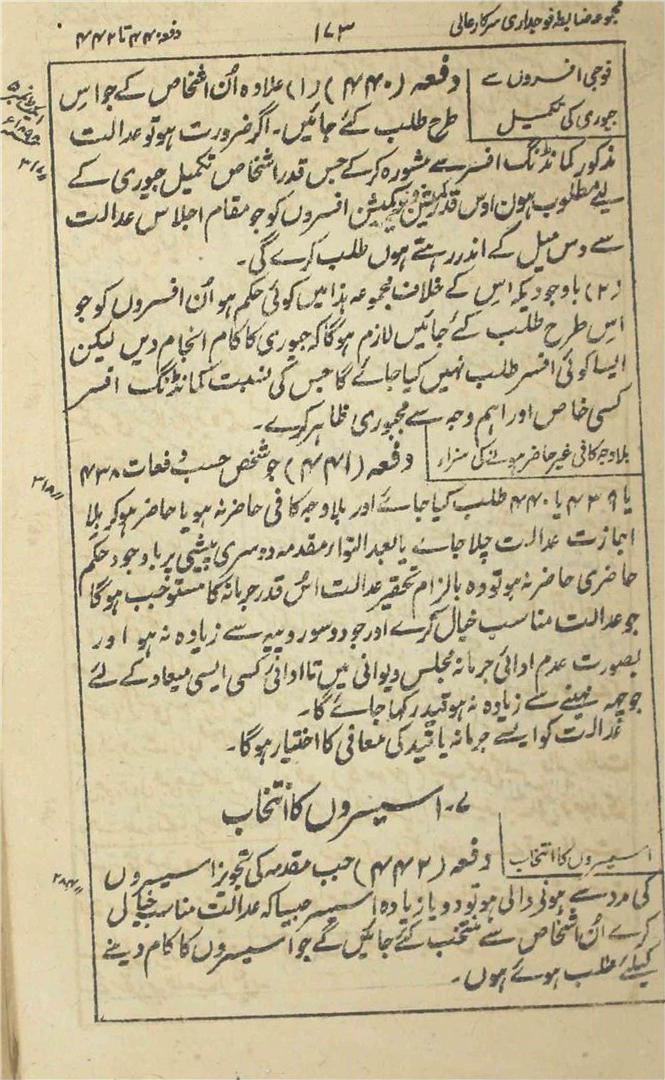 مجموعہ ضابطہ فوجداری سرکار عالی
۱۷۳
دفعہ ۴۴۰ تا ۴۴۲
فوجی افسروں سے
جیوری کی تکمیل
دفعہ (۴۴۰) (۱) علاوہ اُن اشخاص کے جو اس
طرح طلب کئے جائیں۔ اگر ضرورت ہو تو عدالت
مذکور کمانڈنگ افسر سے مشورہ کرکے جس قدر اشخاص تکمیل جیوری کے
لئے مطلوب ہون اوس قدر کمیشن افسروں کو جو مقام اجلاس عدالت
سے دس میل کے اندر رہتے ہوں طلب کرے گی۔
(۲) باوجودیکہ اس کے خلاف مجموعہ ہذا میں کوئی حکم ہو اُن افسروں کو جو
اس طرح طلب کئے جائیں لازم ہوگا کہ جیوری کا کام انجام دیں لیکن
ایسا کوئی افسر طلب نہیں کیا جائے گا جس کی نسبت کمانڈنگ افسر
کسی خاص اور اہم وجہ سے مجبوری ظاہر کرے۔
بلا وجہ کافی غیر حاضر ہونے کی سزا
دفعہ (۴۴۱) جو شخص حسب دفعات ۴۳۸
یا ۴۳۹ یا ۴۴۰ طلب کیا جائے اور بلا وجہ کافی حاضر نہ ہو یا حاضر ہو کر بلا
اجازت عدالت چلا جاے یا بعد التوار مقدمہ دوسری پیشی پر باوجود حکم
حاضری حاضر نہ ہو تو وہ بالزام تحقیر عدالت اُس قدر جرمانہ کا مستوجب ہوگا
جو عدالت مناسب خیال کرے اور جو دو سو روپیہ سے زیادہ نہ ہو اور
بصورت عدم ادائی جرمانہ مجلس دیوانی میں تا ادائی کسی ایسی میعاد کے لئے
جو چھ مہینے سے زیادہ نہ ہو قید رکھا جائے گا۔
عدالت کو ایسے جرمانہ یا قید کی معافی کا اختیار ہوگا۔
۷۔ اسیسروں کا انتخاب
اسیسروں کا انتخاب
دفعہ (۴۴۲) جب مقدمہ کی تجویز اسیسروں
کی مدد سے ہونی والی ہو تو دو یا زیادہ اسیسر جیسا کہ عدالت مناسب خیال
کرے اُن اشخاص سے منتخب کئے جائیں گے جو اسیسروں کا کام دینے
کیلئے طلب ہوئے ہوں۔